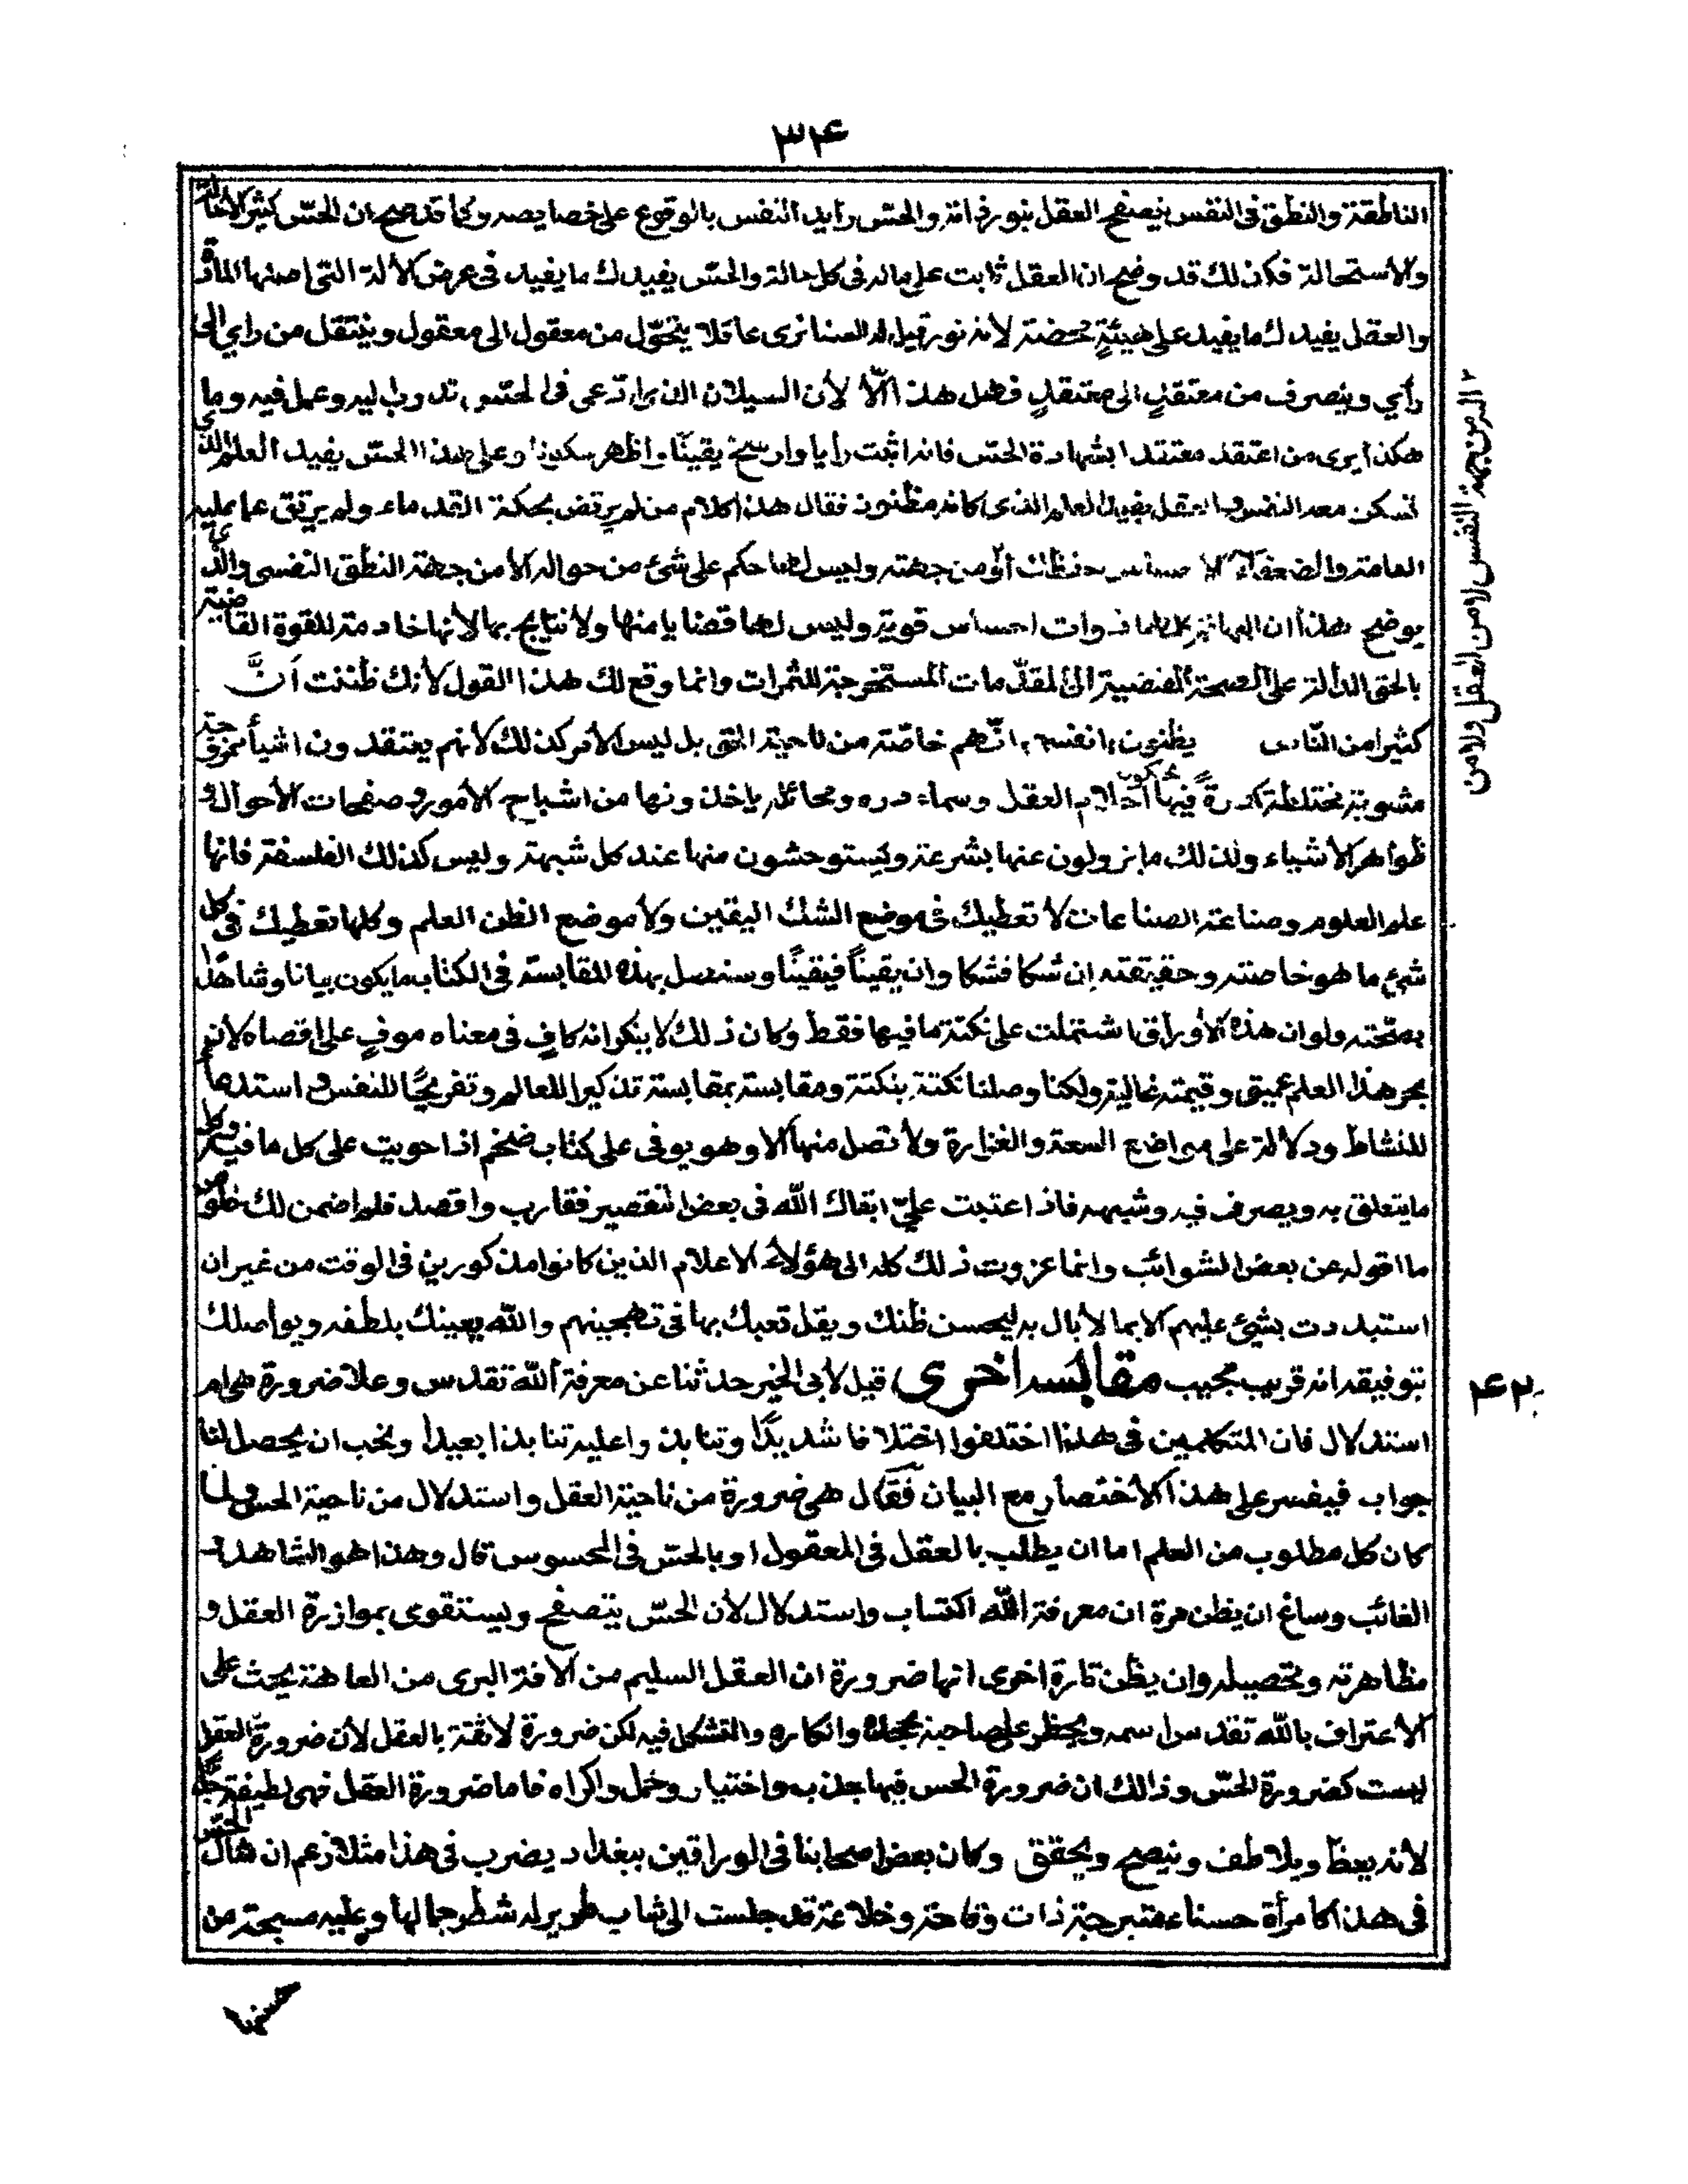 ٣۴
الناطقة والنطق فى النفس يتصفح العقل بنور ذاته والحس رايد النفس بالوقوع على خصايصه وكما قد صح ان الحسّ كثير الاحالة
والأستحالة فكذلك قد وضح ان العقل ثابت على ماله فى كل حالة والحسّ يفيدك ما يفيد فى عرض الألة التى اصلها المادة
والعقل يفيدك ما يفيد على هيئةٍ محضة لانه نور قيل له السنا نرى عاقلا يتحّول من معقول الى معقول وينتقل من راي الى
رأي وينصرف من معتقدٍ الى معتقدٍ فهل هذا الّا لأن السيلان الذى ادّعى فى الحسّ قد دبّ اليه وعمل فيه وما
هكذا يرى من اعتقد معتقدا بشهادة الحسّ فانه اثبت رأيا وارسخ يقينًا واظهر سكونا وعلى هذا الحسّ يفيد العلم الذى
تسكن معه النفس والعقل يفيد العلم الذى كانه مظنون فقال هذا كلام من لم يرتض بحكمة القدماء ولم يرتق عما عليه
العامة والضعفاء الاحساس حفظك الله من جهته وليس لها حكم على شئ من حواله الا من جهة النطق النفسى والذى
يوضح هذا ان البهائم كلها ذوات احساس قوية وليس لها قضايا منها ولا نتايج بها لأنها خادمة للقوة القاضية
بالحق الدالة على الصحة المفضية الى المقدّمات المستخرجة للثمرات وانما وقع لك هذا القول لأنك ظننت أنَّ
كثيرا من النّاس يظنون بانفسهم انّهم خاصّة من ناحية التى بل ليس الأمر كذلك لأنهم يعتقدون اشيأ ممزوجة
مشوبة مختلطة كدرةً فيها احلام العقل وسماء دره ومحائل ياخذونها من اشباح الأمور وصفحات الأحوال و
ظواهر الأشياء ولذلك ما يزولون عنها بشرعة ويستوحشون منها عند كل شبهة وليس كذلك الفلسفة فانها
علم العلوم وصناعة الصناعات لا تعطيك فى موضع الشك اليقين ولا موضع الظن العلم وكلها تعطيك فى كل
شئ ما هو خاصته وحقيقته ان شكا فشكا وان يقيناً فيقينًا وسنصل بهذه المقابسة فى الكتاب ما يكون بيانا وشاهدا
بصّحته ولو ان هذه الأوراق اشتملت على نكتة ما فيها فقط وكان ذلك لا ينكر انه كافٍ فى معناه موفٍ على اقصاه لأن
بحر هذا العلم عميق وقيمته غالية ولكنا وصلنا نكتة بنكتة ومقابسة بمقابسة تذكيرا للعالم وتفريجًا للنفس واستدعاءً
للنشاط ودلالة على مواضع السعة والغزارة ولا نصل منها الا وهو يوفى على كتاب ضخم اذا حويت على كل ما فيه وكل
ما يتعلق به ويصرف فيه وشبهه فاذا عتبت عليّ ابقاك الله فى بعض التقصير فقارب واقصد فلم اضمن لك خلوص
ما اقوله عن بعض الشوائب وانما عزوت ذلك كله الى هؤلاء الاعلام الذين كانوا مذكورين فى الوقت من غير ان
استبددت بشئ عليهم الا بما لا بال به ليحسن ظنك ويقل تعبك بها فى تهجينهم والله يعينك بلطفه ويواصلك
بتوفيقه انه قريب مجيب مقابسه اخرى قيل لأبى الخير حدثنا عن معرفة الله تقدس وعلا ضرورة هى ام
استدلال فان المتكلمين فى هذا اختلفوا اختلافا شديدًا وتنابذوا عليه تنابذا بعيدا ونحب ان يحصل لنا
جواب فيفسر على هذا الأختصار مع البيان فقال هى ضرورة من ناحية العقل واستدلال من ناحية الحس ولما
كان كل مطلوب من العلم اما ان يطلب بالعقل فى المعقول او بالحسّ فى المحسوس قال وهذا هو الشاهد
الغائب وساغ ان يظن مرة ان معرفة الله اكتساب واستدلال لأن الحسّ يتصفح ويستقوى بموازرة العقل و
مظاهرته وتحصيله وان يظن تارة اخرى انها ضرورة ان العقل السليم من الافة البرى من العاهة يحث على
الأعتراف بالله تقدس اسمه ويحظر على صاحبه جحده وانكاره والتشكل فيه لكن ضرورة لائقة بالعقل لأن ضرورة العقل
ليست كضرورة الحسّ وذالك ان ضرورة الحس فيها جذب واختيار وحمل واكراه فاما ضرورة العقل فهى لطيفة جدا
لانه يعظ ويلاطف وينصح ويحقق وكان بعض اصحابنا فى الوراقين ببغداد يضرب فى هذا مثلا زعم ان مثال الحسّ
فى هذا كامرأة حسناء متبرجة ذات وقاحة وخلاعة قد جلست الى شاب طرير له شطر جمالها وعليه مسحة من
الا من جهة النفس لا من العقل ولا من
۴٢
حسنها